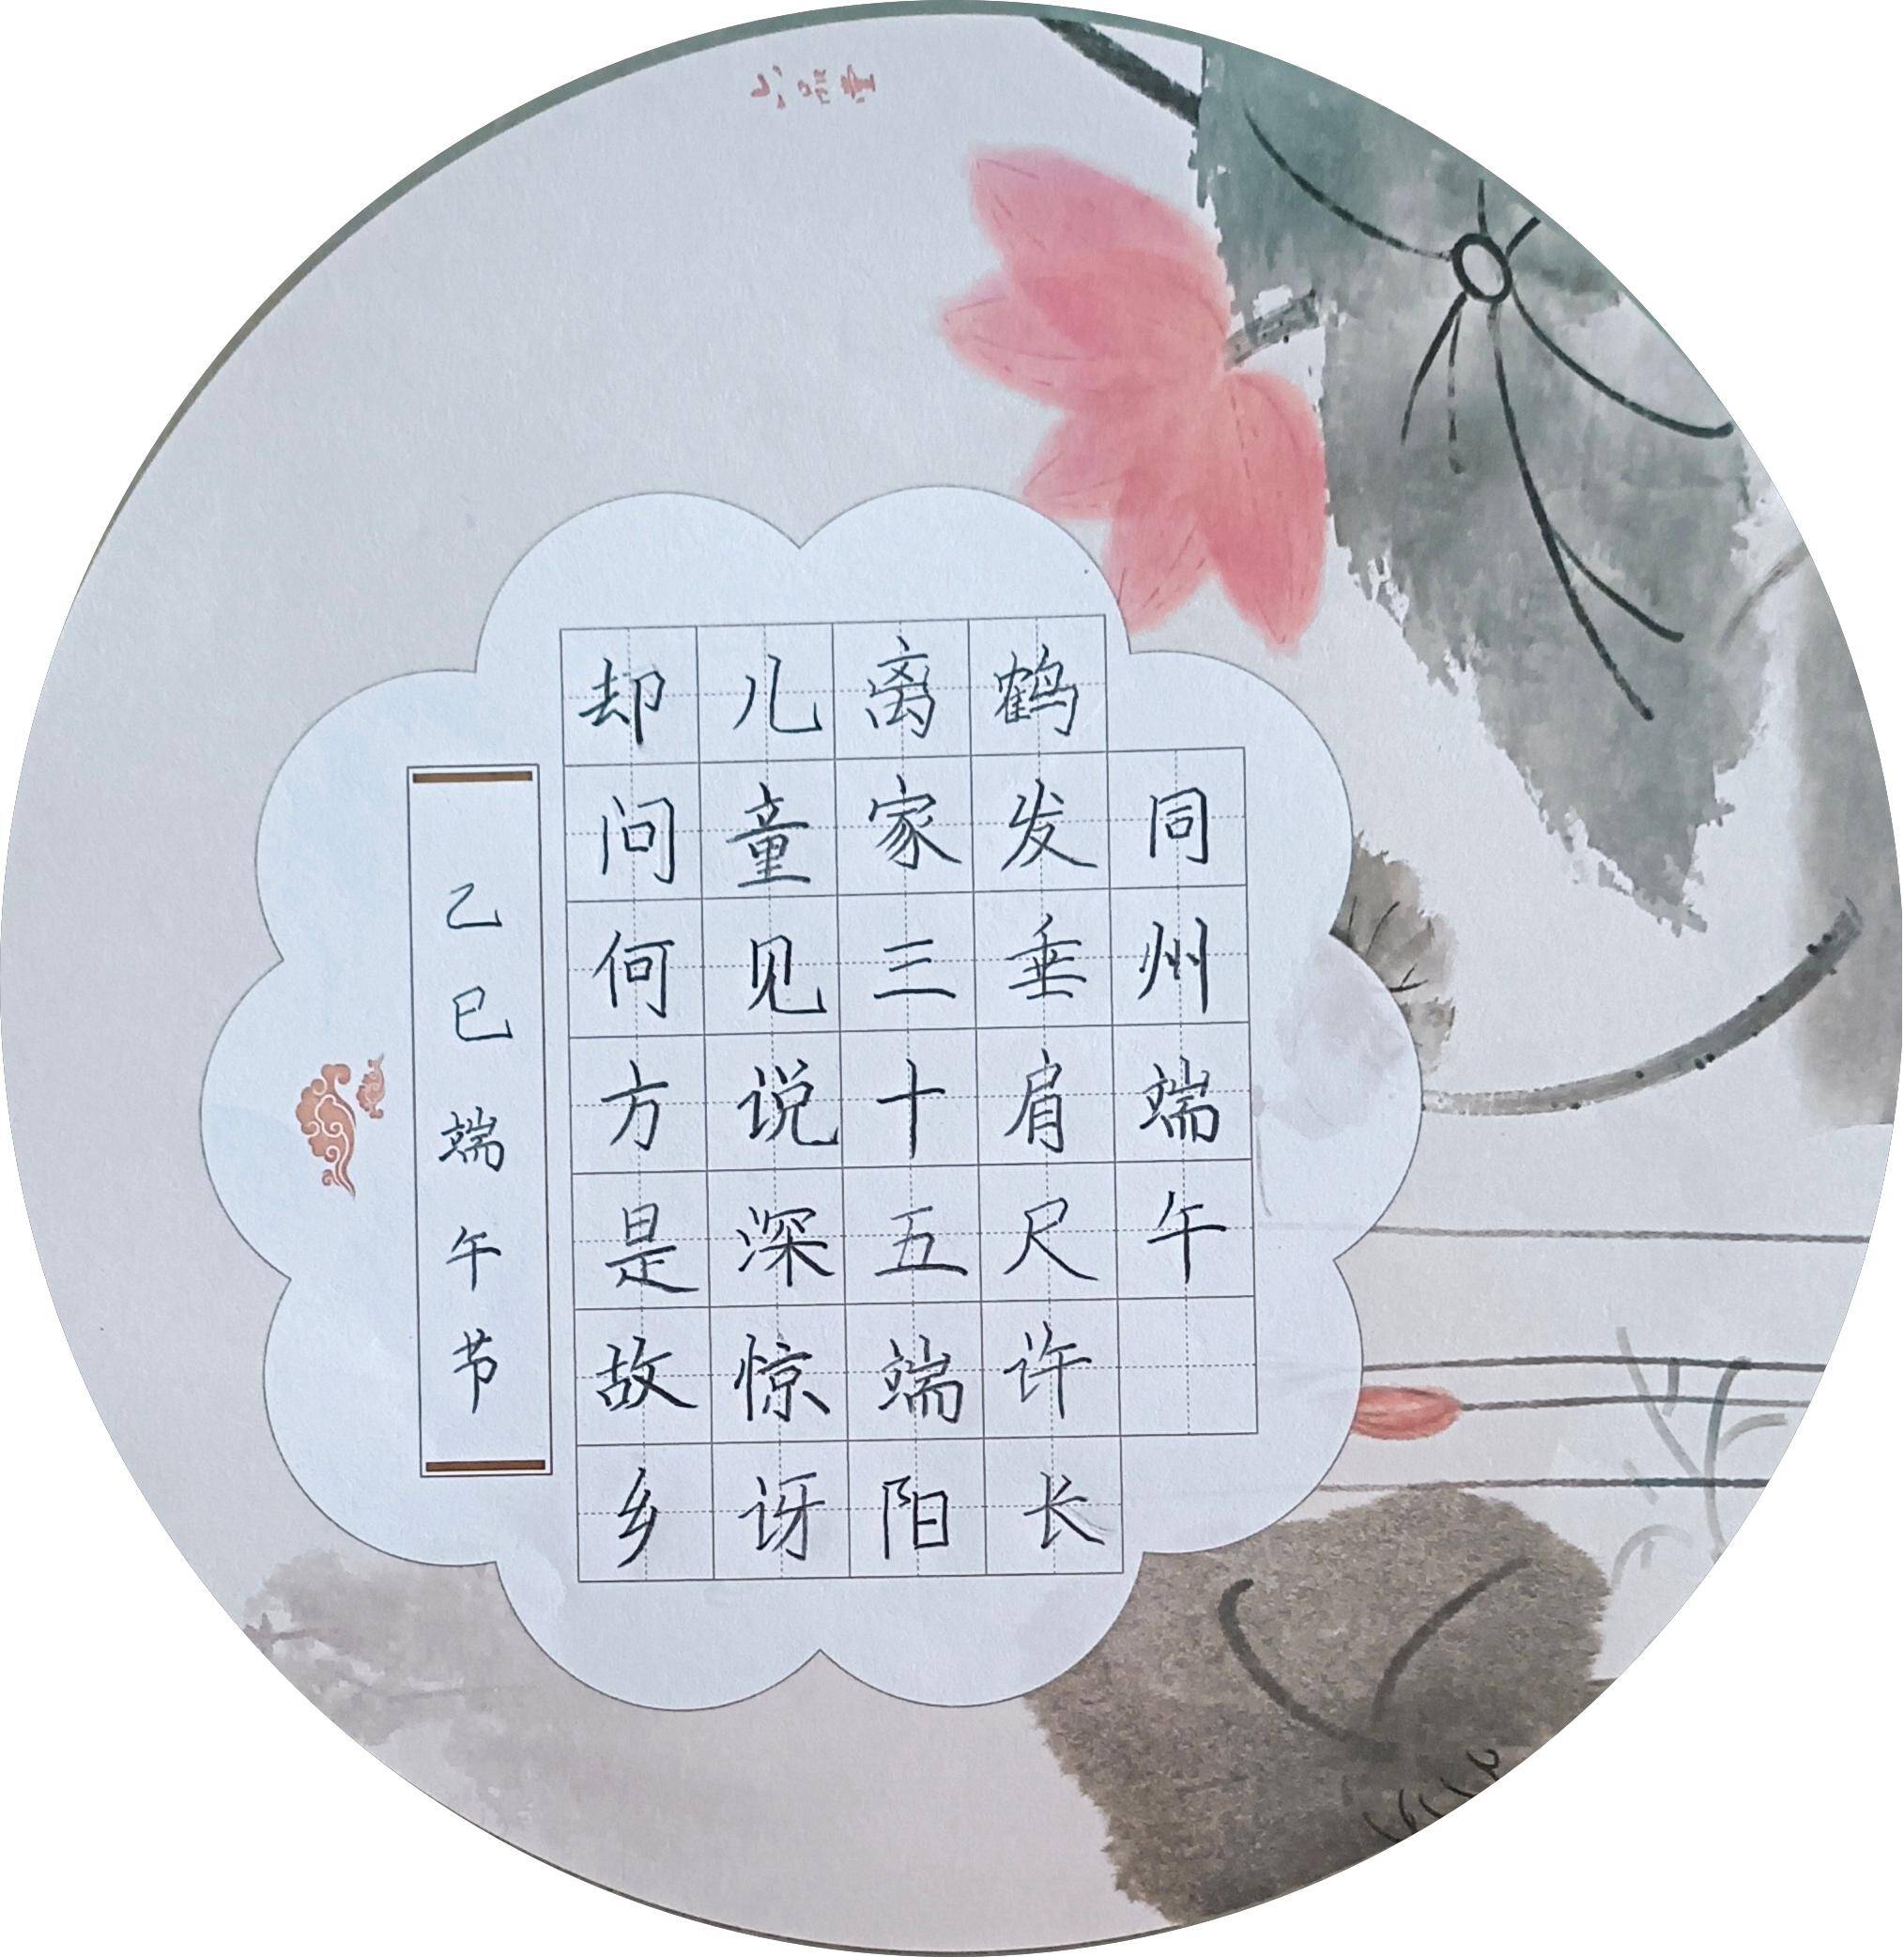 同州端午
鹤发垂肩尺许长
离家三十五端阳
儿童见说深惊讶
却问何方是故乡
乙巳端午节